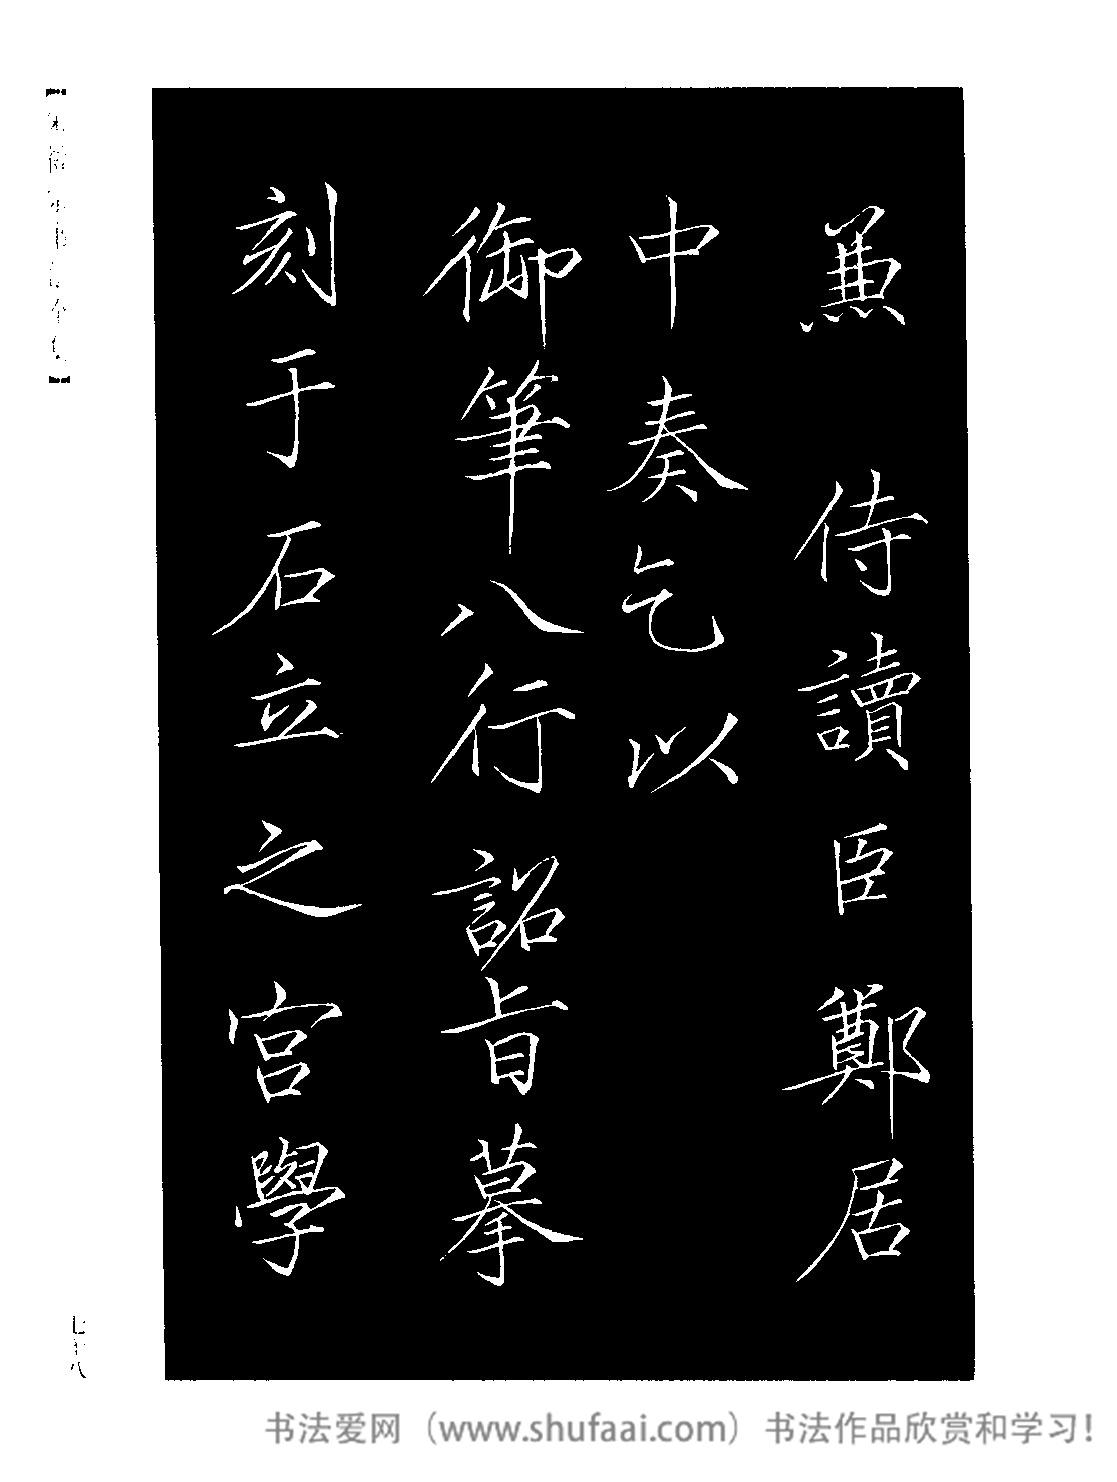 兼 侍讀臣鄭居
中奏乞以
御筆八行詔旨摹
刻于石立之宫學
七十八
书法爱网（www.shufaai.com）书法作品欣赏和学习！